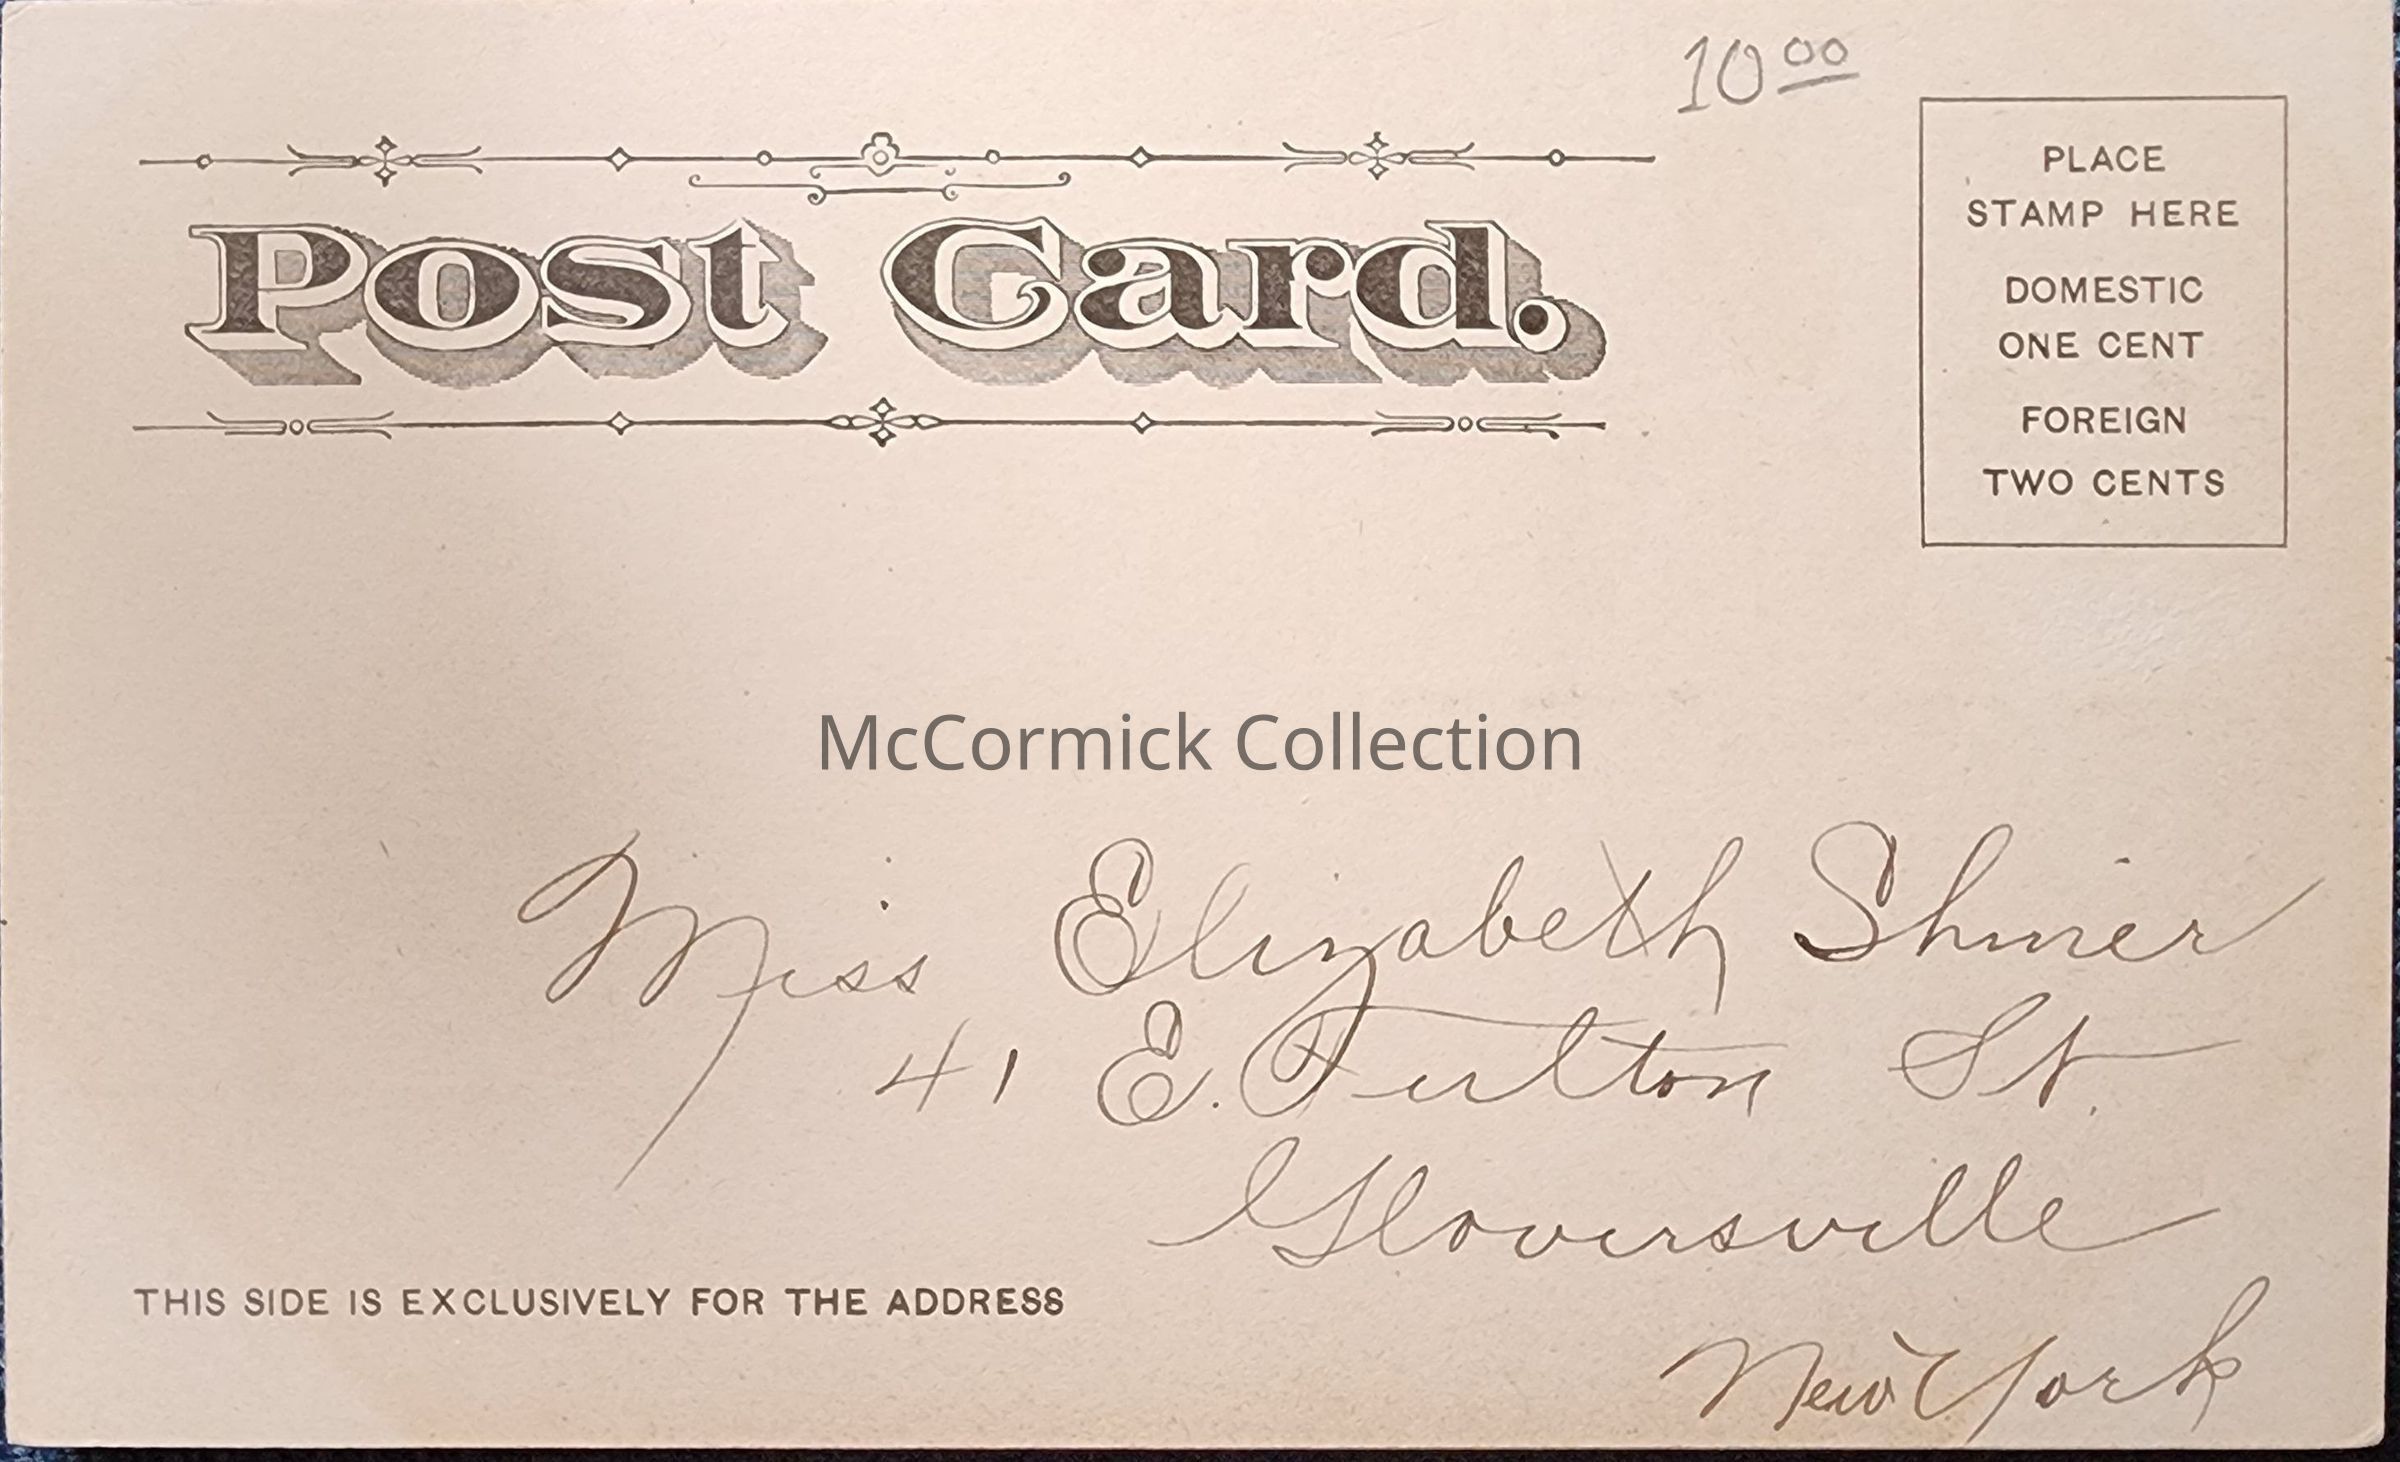 10 00
Post Card.
PLACE
STAMP HERE
DOMESTIC
ONE CENT
FOREIGN
TWO CENTS
McCormick Collection
Miss Elizabeth Shiner
41 E. Fulton St.
Gloversville
New York
THIS SIDE IS EXCLUSIVELY FOR THE ADDRESS